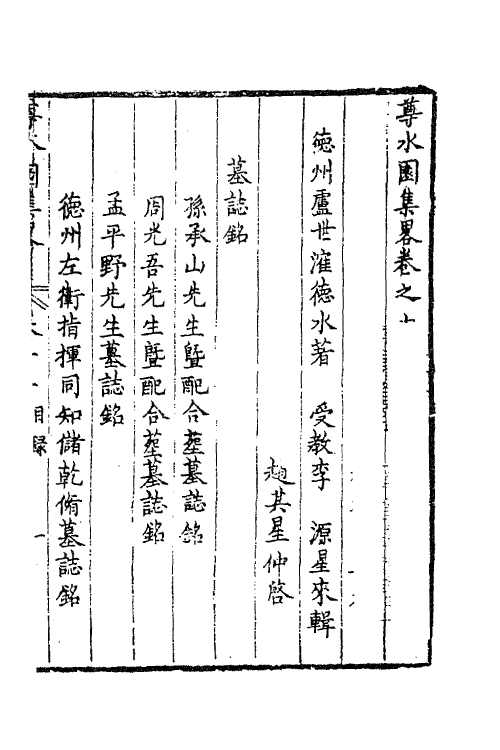 尊水園集畧卷之十
德州盧世㴶德水著　受教李　源星來輯
趙其星仲啓
墓誌銘
孫承山先生曁配合塟墓誌銘
周光吾先生曁配合塟墓誌銘
孟平野先生墓誌銘
德州左衛指揮同知儲乾脩墓誌銘
尊水園集畧　目録　一